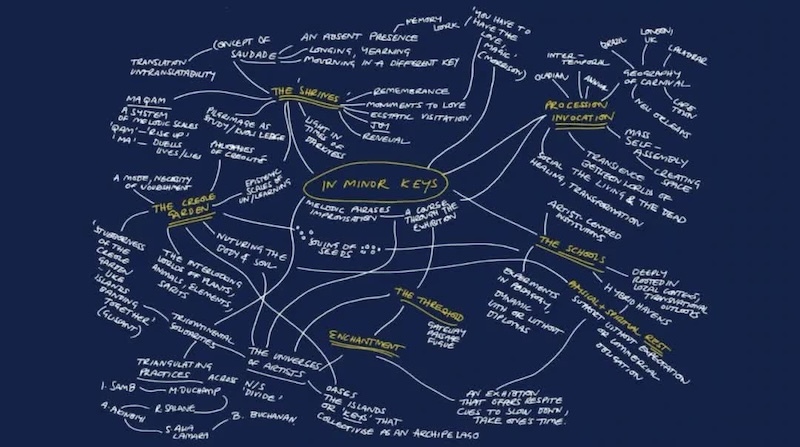 TRANSLATION
UNTRANSLATABILITY
CONCEPT OF
SAUDADE
AN ABSENT PRESENCE
MEMORY
WORK
LONGING, YEARNING
MOURNING IN A DIFFERENT KEY
'YOU HAVE TO
HAVE THE
LOVE
(MORRISON)
THE 'SHRINES
REMEMBRANCE
MONUMENTS TO LOVE
ECSTATIC VISITATION
JOY
RENEWAL
LIGHT IN
TIMES OF
DARKNESS
MAQAM
A SYSTEM
OF MELODIC SCALES
'QAM' - 'RISE UP'
'MA' -
PILGRIMAGE AS
STUDY/KNOWLEDGE
OF CREOLITÉ
EPISTEMIC
SCALES OF
UN/LEARNING
A MODE, NECESSITY
OF NOURISHMENT
THE CREOLE
GARDEN
'STUBBORNNESS
OF THE
CREOLE
GARDEN
- LIKE
ISLANDS
DANCING
TOGETHER'
(GLISSANT)
THE INTERLOCKING
WORLDS OF PLANTS
ANIMALS, ELEMENTS,
SPIRITS
NUTURING THE
BODY & SOUL
SOWING OF
SEEDS
IN MINOR KEYS
MELODIC PHRASES
IMPROVISATION
A COURSE
THROUGH THE
EXHIBITION
PROCESSION
INVOCATION
INTER-
TEMPORAL
BRAZIL
LONDON/
UK
GEOGRAPHY
OF CARNIVAL
CAPE
TOWN
NEW ORLEANS
MASS
SELF-
ASSEMBLY
CREATING
SPACE
TRANSIENCE
BETWEEN WORLDS OF
THE LIVING & THE DEAD
SOCIAL
HEALING, TRANSFORMATION
ARTIST-CENTRED
INSTITUTIONS
THE SCHOOLS
DEEPLY
ROOTED IN
LOCAL CONTEXTS,
TRANSNATIONAL
OUTLOOKS
HYBRID HAVENS
EXPERIMENTS
IN PEDAGOGY,
DYNAMIC
WITH OR WITHOUT
DIPLOMAS
PHYSICAL + SPIRITUAL REST
SUPPORT WITHOUT EXPECTATION
OR COMMERCIAL
OBLIGATION
THE THRESHOLD
GATEWAY
PASSAGE
FUGUE
ENCHANTMENT
AN EXHIBITION
THAT OFFERS RESPITE
CUES TO SLOW DOWN,
TAKE ONE'S TIME.
TRICONTINENTAL
SOLIDARITIES
TRIANGULATING
PRACTICES
ACROSS
N/S
'DIVIDE'
THE UNIVERSES
OF ARTISTS
I. SAMB
M. DUCHAMP
B. BUCHANAN
OASES
THE ISLANDS
OR 'KEYS' THAT
COLLECTIVISE AS AN ARCHIPELAGO